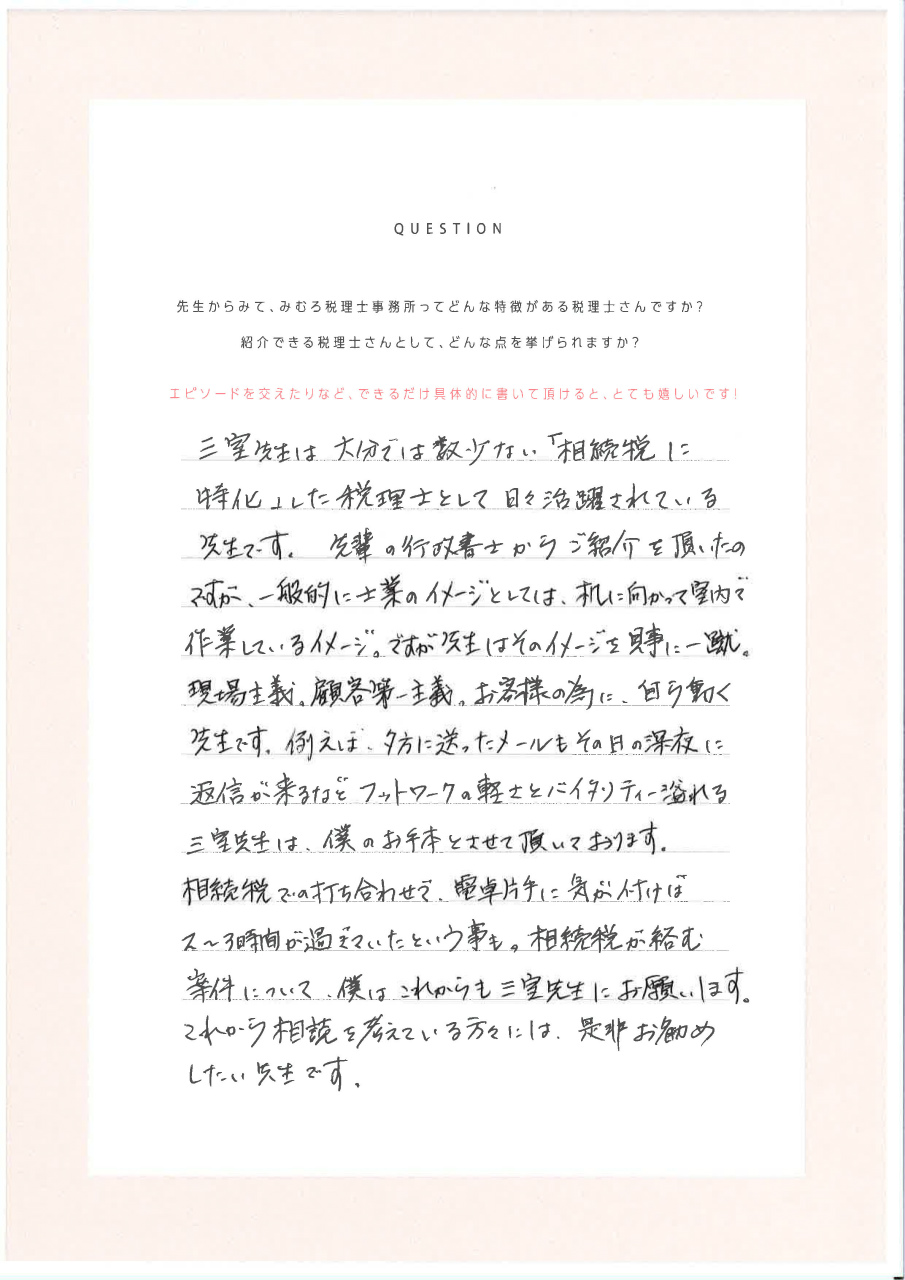 QUESTION
先生からみて、みむろ税理士事務所ってどんな特徴がある税理士さんですか?
紹介できる税理士さんとして、どんな点を挙げられますか?
エピソードを交えたりなど、できるだけ具体的に書いて頂けると、とても嬉しいです!
三室先生は大分では数少ない「相続税に
特化」した税理士として日々活躍されている
先生です。先輩の行政書士からご紹介を頂いたの
ですが、一般的に士業のイメージとしては、机に向かって室内で
作業しているイメージ。ですが先生はそのイメージを見事に一蹴。
現場主義。顧客第一主義。お客様の為に、自ら動く
先生です。例えば、夕方に送ったメールもその日の深夜に
返信が来るなどフットワークの軽さとバイタリティー溢れる
三室先生は、僕のお手本とさせて頂いております。
相続税での打ち合わせで、電卓片手に気が付けば
2〜3時間が過ぎていたという事も。相続税が絡む
案件について、僕はこれからも三室先生にお願いします。
これから相談を考えている方々には、是非お勧め
したい先生です。